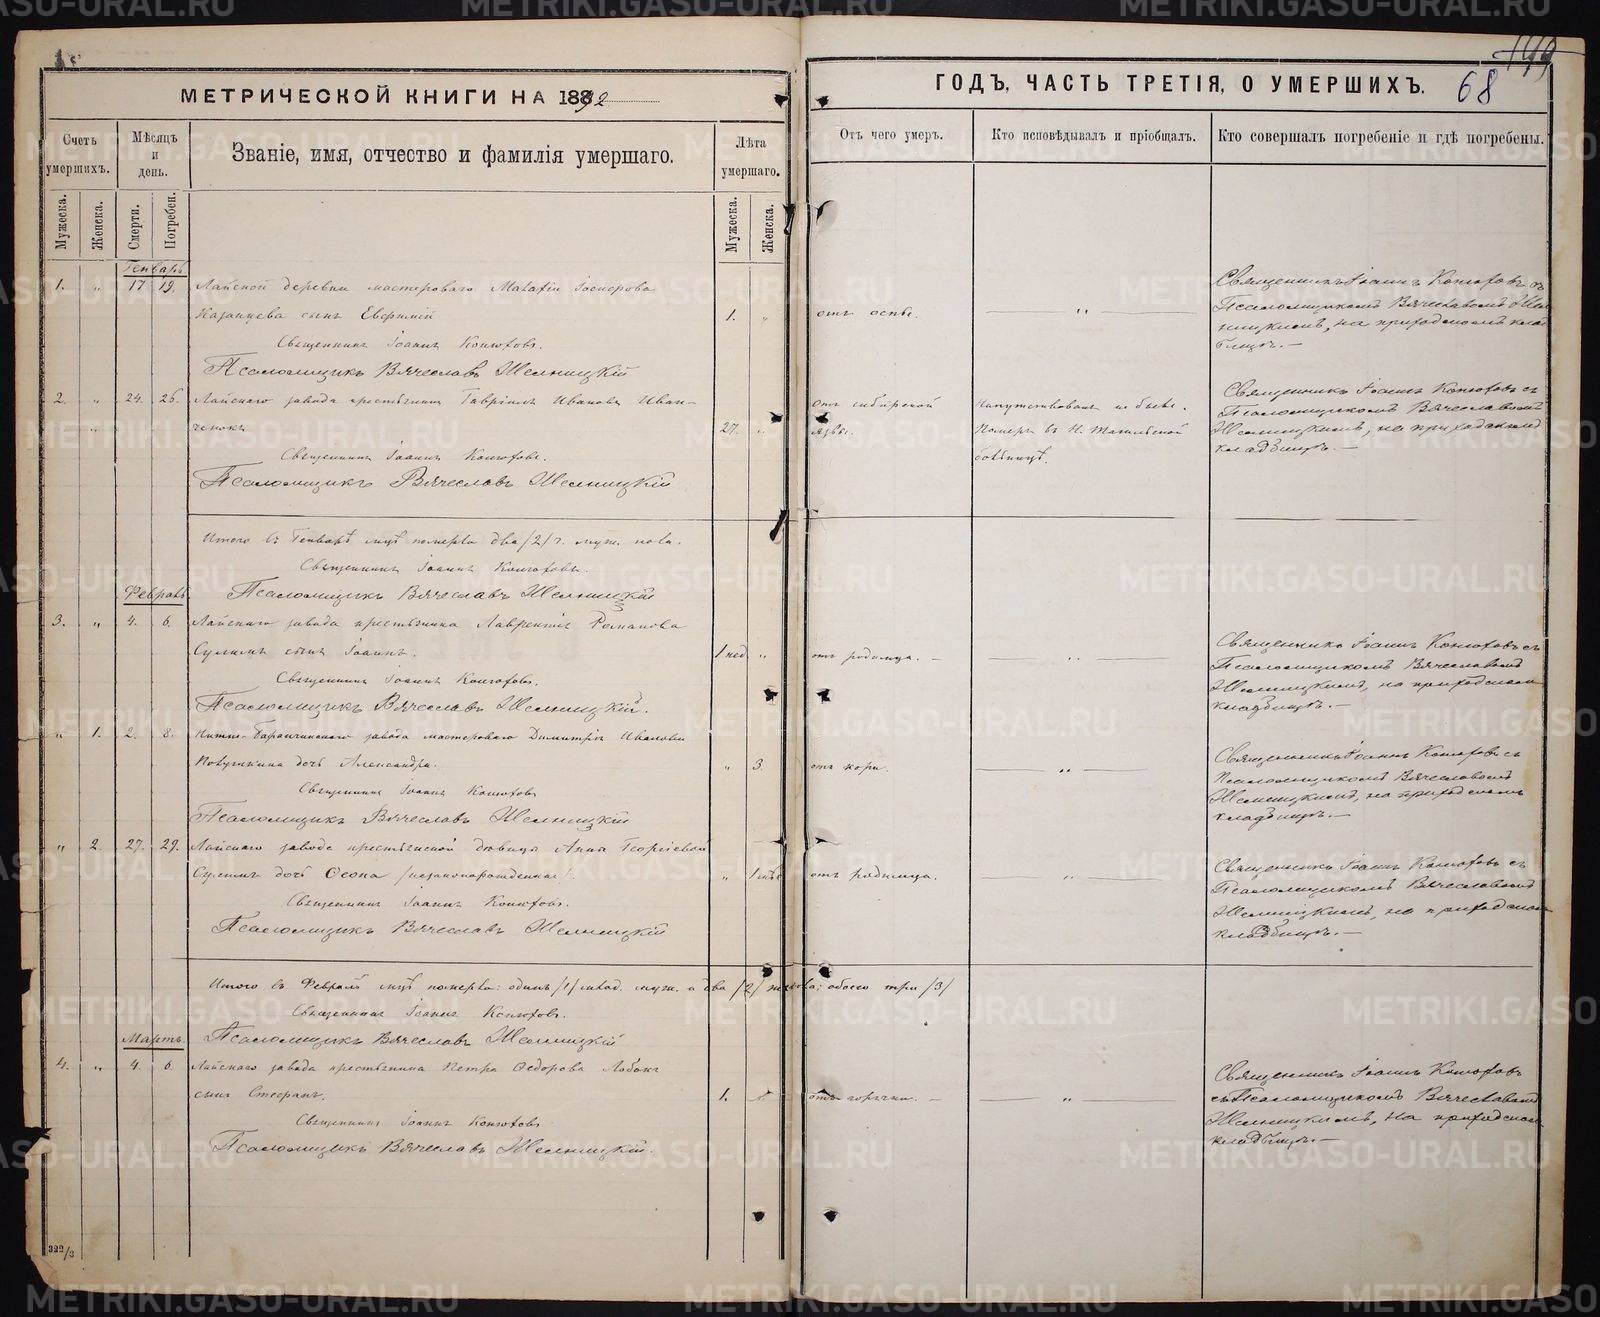 МЕТРИЧЕСКОЙ КНИГИ НА 1892
Счетъ умершихъ.
Мѣсяцъ и день.
Званіе, имя, отчество и фамилія умершаго.
Лѣта умершаго.
Мужеска.
Женска.
Смерти.
Погребен.
Мужеска.
Женска.
Генварь
1. " 17 19. Лайской деревни мастероваго
Казанцева сынъ 1. "
Священникъ Іоаннъ Конюховъ.
Псаломщикъ Вячеславъ
2. " 24. 26. Лайскаго завода крестьянинъ Гавріилъ Ивановъ Иван-
" ченокъ 27. "
Священникъ Іоаннъ Конюховъ.
Псаломщикъ Вячеславъ
Итого въ Генварѣ мцѣ померло два /2/ ч. муж. пола.
Священникъ Іоаннъ Конюховъ.
Февраль
Псаломщикъ Вячеславъ
3. " 4. 6. Лайскаго завода крестьянина Лаврентія Романова
сынъ Іоаннъ. 1 нед. "
Священникъ Іоаннъ Конюховъ.
Псаломщикъ Вячеславъ
" 1. 2. 8. Нижне-Баранчинскаго завода мастероваго Димитрія Иванова
дочь Александра. " 3.
Священникъ Іоаннъ Конюховъ
Псаломщикъ Вячеславъ
" 2. 27. 29. Лайскаго завода крестьянской дѣвицы Анны Георгіевой
дочь Ѳеопа /незаконорожденная/. " 1 мѣс
Священникъ Іоаннъ Конюховъ.
Псаломщикъ Вячеславъ
Итого въ Февралѣ мцѣ померло: одинъ /1/ млад. муж. и два /2/ жен. пола; обоего три /3/
Священникъ Іоаннъ Конюховъ.
Мартъ.
Псаломщикъ Вячеславъ
4. " 4. 6. Лайскаго завода крестьянина Петра Ѳедорова Лобокъ
сынъ Стефанъ. 1. "
Священникъ Іоаннъ Конюховъ
Псаломщикъ Вячеславъ
322/3
199
ГОДЪ, ЧАСТЬ ТРЕТІЯ, О УМЕРШИХЪ. 68
Отъ чего умеръ.
Кто исповѣдывалъ и пріобщалъ.
Кто совершалъ погребеніе и гдѣ погребены.
отъ оспы. — " —
Священникъ Іоаннъ Конюховъ съ
Псаломщикомъ Вячеславомъ
на приходскомъ клад-
бищѣ.—
Отъ сибирской
язвы.
Напутствованъ не былъ.
Померъ въ Н. Тагильской
больницѣ.
Священникъ Іоаннъ Конюховъ съ
Псаломщикомъ Вячеславомъ
на приходскомъ
кладбищѣ.—
отъ родимца. — — " —
Священникъ Іоаннъ Конюховъ съ
Псаломщикомъ Вячеславомъ
на приходскомъ
кладбищѣ.—
отъ кори. — " —
Священникъ Іоаннъ Конюховъ съ
Псаломщикомъ Вячеславомъ
на приходскомъ
кладбищѣ.—
отъ родимца. — " —
Священникъ Іоаннъ Конюховъ съ
Псаломщикомъ Вячеславомъ
на приходскомъ
кладбищѣ.—
отъ горячки. — — " —
Священникъ Іоаннъ Конюховъ
съ Псаломщикомъ Вячеславомъ
на приходскомъ
кладбищѣ.—
METRIKI.GASO-URAL.RU